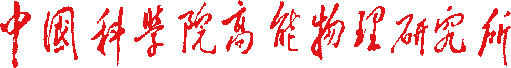 中國科学院高能物理研究所